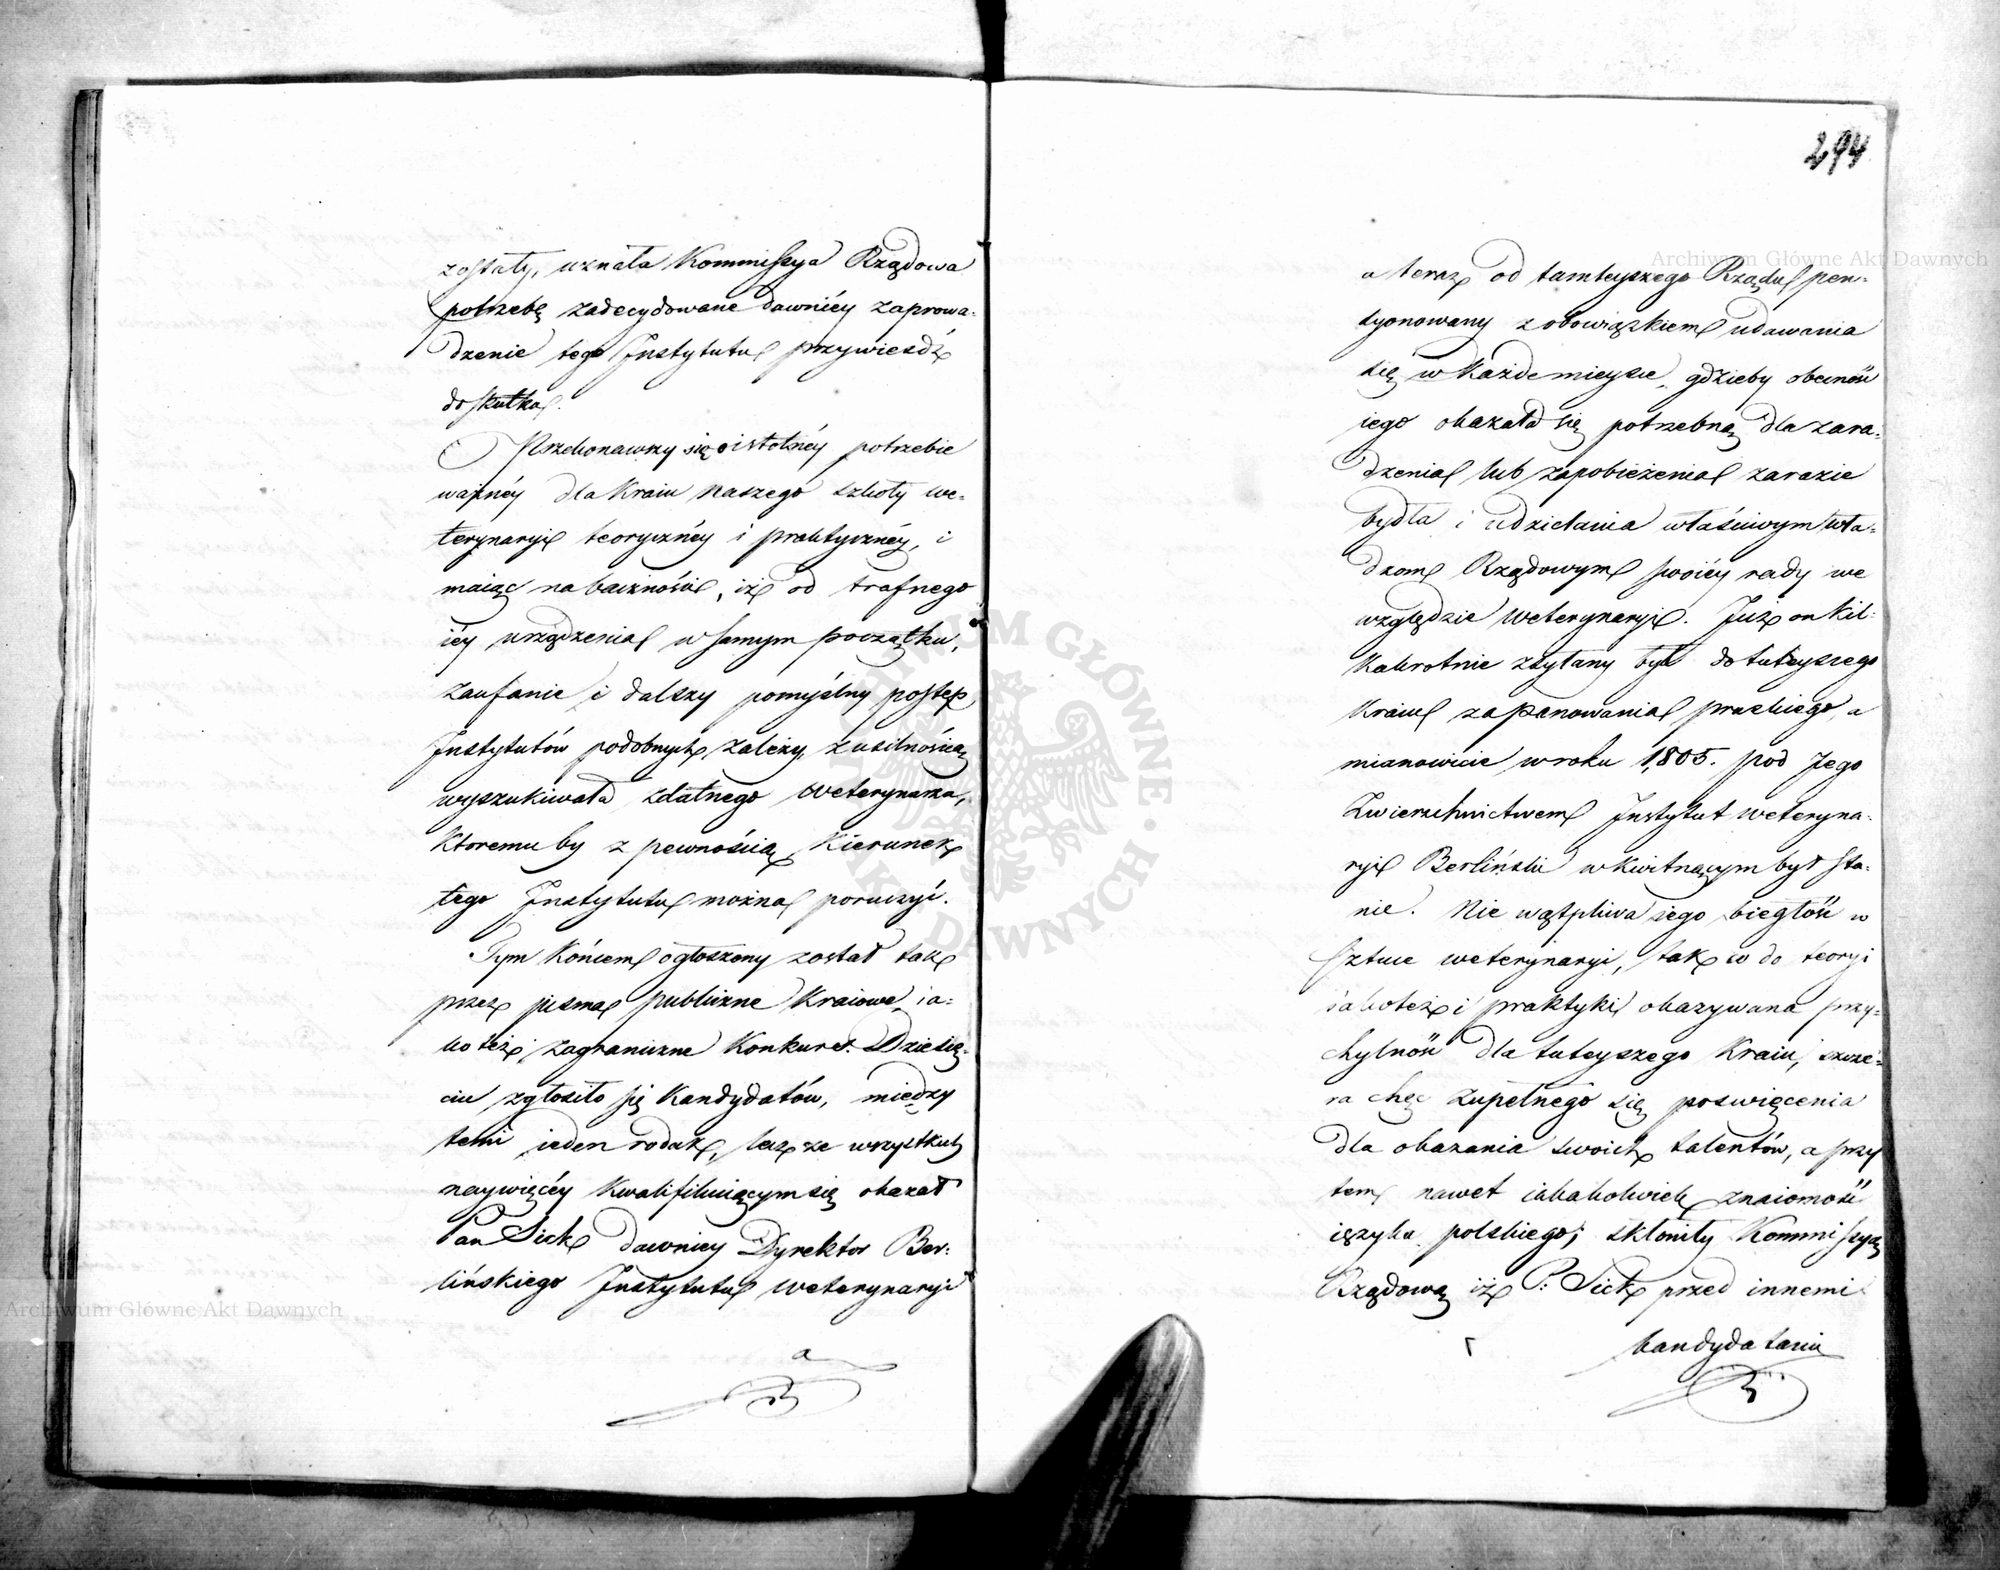 zostały, uznała Kommissya Rządowa
potrzebę zadecydowane dawniéy zaprowa-
dzenie tego Instytutu przywieśdź
do skutku.
Przekonawszy się o istotnéy potrzebie
ważnéy dla Kraiu naszego szkoły we-
terynaryi teorycznéy i praktycznéy, i
maiąc na baczności, iż od trafnego
iéy urządzenia w samym początku,
zaufanie i dalszy pomyślny postęp
Instytutów podobnych zależy, z usilnością
wyszukiwała zdatnego weterynarza,
któremu by z pewnością kierunek
tego Instytutu można poruczyć.
Tym końcem ogłoszony został tak
przez pisma publiczne Kraiowe, ia-
ko też i zagraniczne Konkurs. Dziesię-
ciu zgłosiło się Kandydatów, między
temi ieden rodak, lecz ze wszystkich
naywięcéy kwalifikuiącym się okazał
Pan Sick dawniey Dyrektor Ber-
lińskiego Instytutu weterynaryi
a
294
a teraz od tamteyszego Rządu pen-
syonowany z obowiązkiem udawania
się w każde mieysce, gdzieby obecność
iego okazała się potrzebną dla zara-
dzenia lub zapobieżenia zarazie
bydła i udzielania właściwym wła-
dzom Rządowym swoiéy rady we
względzie weterynaryi. Już on kil-
kakrotnie zsyłany był do tuteyszego
Kraiu za panowania pruskiego, a
mianowicie w roku 1,805. pod Jego
Zwierzchnictwem Instytut weteryna-
ryi Berliński w kwitnącym był sta-
nie. Nie wątpliwa iego biegłość w
sztuce weterynaryi, tak co do teoryi
iako też i praktyki okazywana przy-
chylność dla tuteyszego Kraiu, szcze-
ra chęć zupełnego się poswięcenia
dla okazania swoich talentów, a przy
tem nawet iakakolwiek znaiomość
ięzyka polskiego; skłoniły Kommissyą
Rządową iż P: Sick przed innemi
kandydatami
Archiwum Główne Akt Dawnych
Archiwum Główne Akt Dawnych
ARCHIWUM GŁÓWNE AKT DAWNYCH